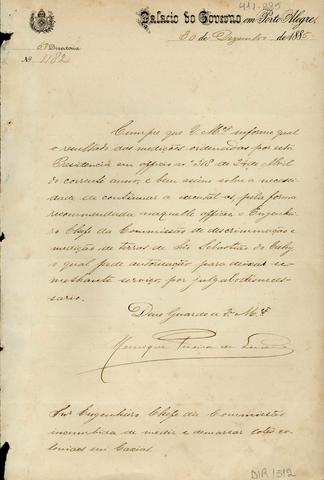 411-885
Palacio do Governo em Porto Alegre,
30 de Dezembro de 1885
6ª Directoria
Nº 4182
Cumpre que V. Mce informe qual
o resultado das medições ordenadas por esta
Presidencia em officio nº 318 de 24 de Abril
do corrente anno, e bem assim sobre a necessi
dade de continuar a executal-as, pela forma
recommendada naquelle officio, o Engenhei
ro Chefe da Commissão de discriminação e
medição de terras de São Sebastião do Cahy,
o qual pede autorisação para deixar se
melhante serviço por julgal-o desneces
sario.
Deus Guarde a V. Mce
Henrique Pereira de Lucena
Snr Engenheiro Chefe da Commissão
incumbida de medir e demarcar lotes co
loniaes em Caxias.
DIR 1312